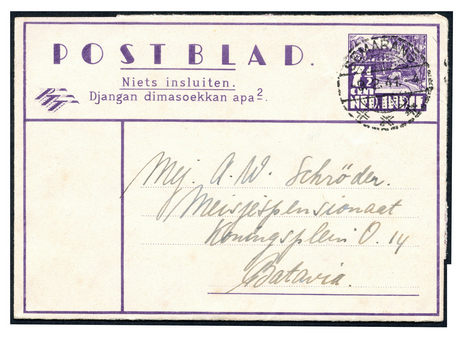 POSTBLAD.
Niets insluiten.
PTT
Djangan dimasoekkan apa2.
SEMARANG
Mej. A. W. Schröder.
Meisjespensionaat
Koningsplein O. 14
Batavia.